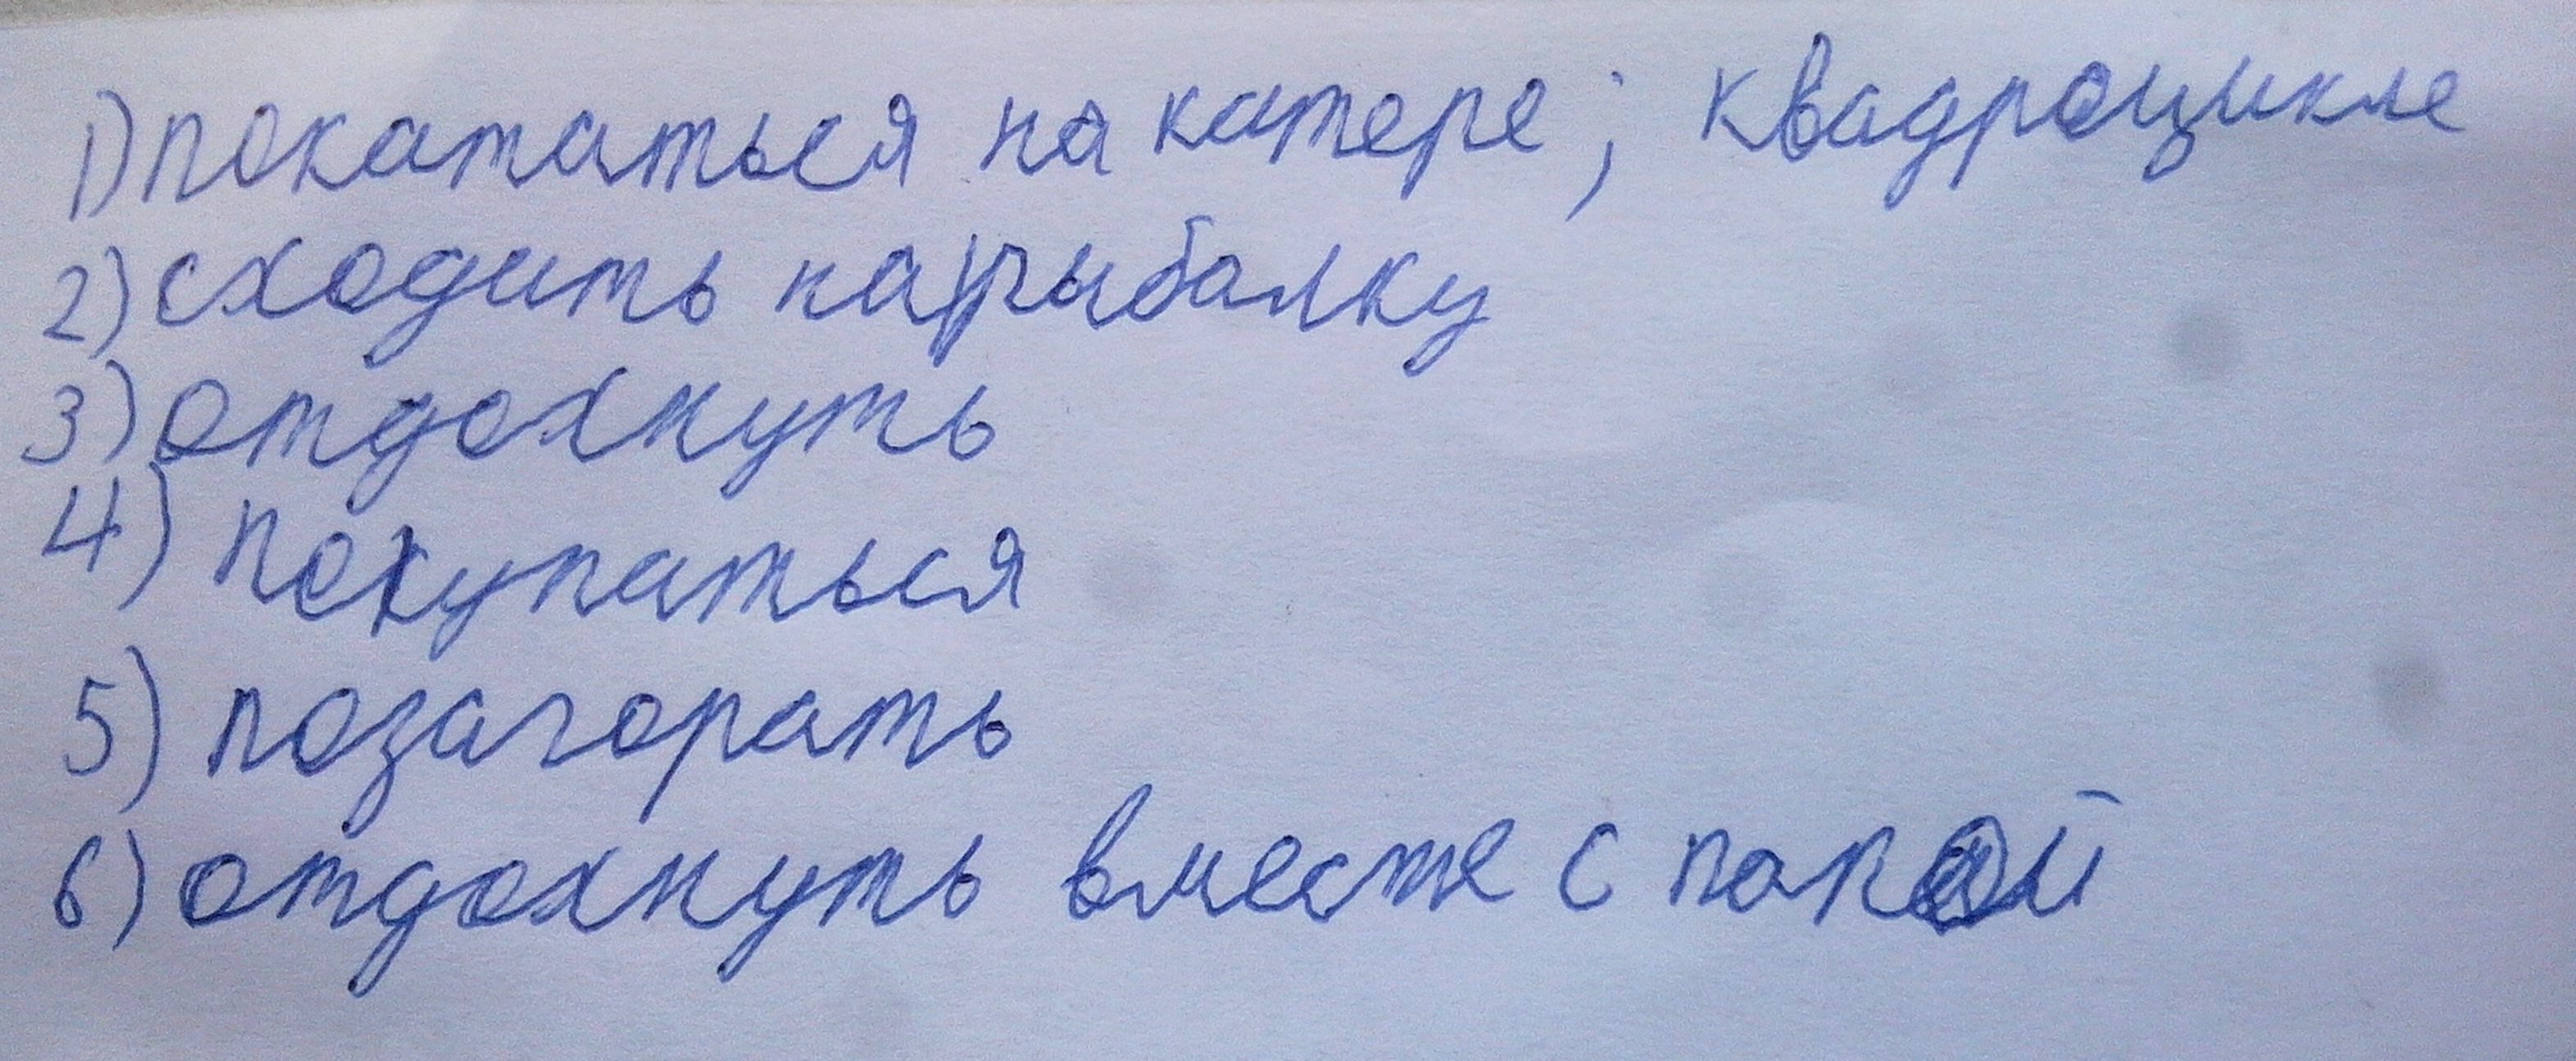 1) покататься на катере; квадроцикле
2) сходить на рыбалку
3) отдохнуть
4) покупаться
5) позагорать
6) отдохнуть вместе с папой